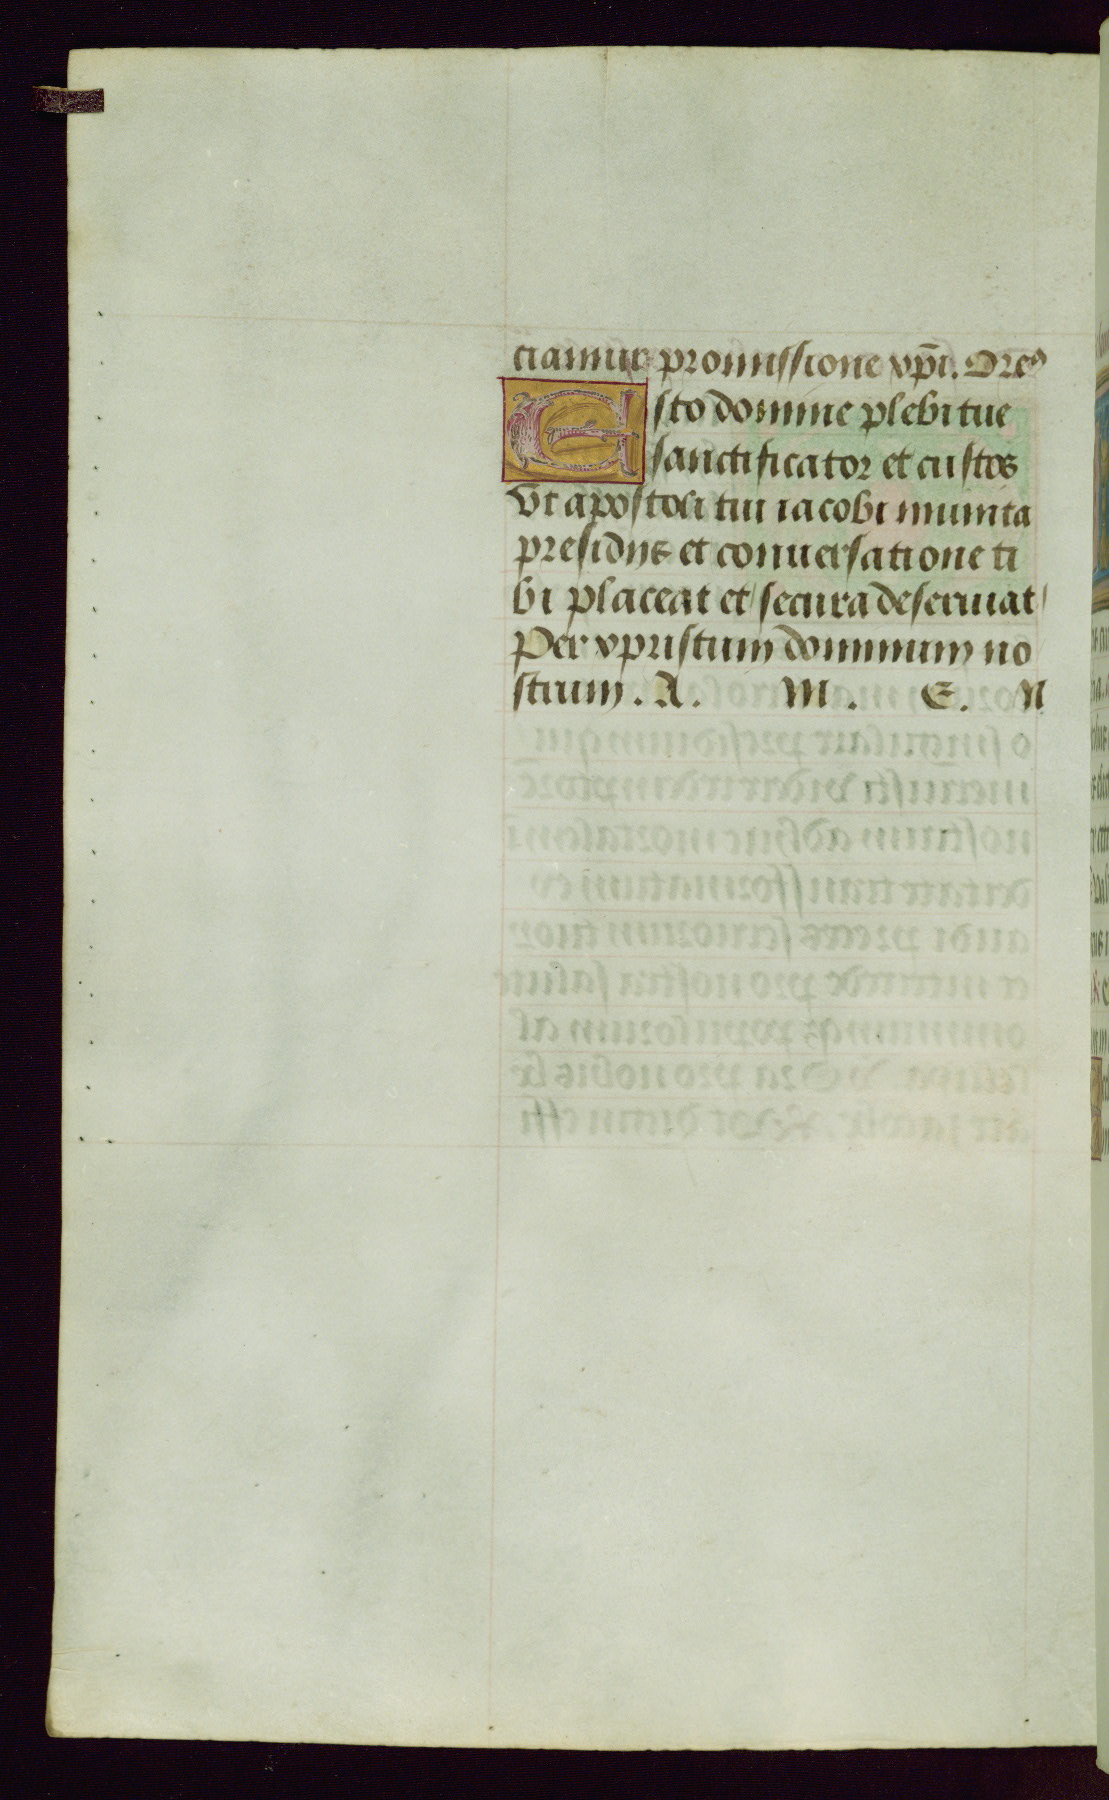 ciamur promissione xp̄i. Oreꝰ
Esto domine plebi tue
sanctificator et custos
Vt apostoli tui iacobi munita
presidijs et conuersatione ti
bi placeat et secura deseruiat
Per xpristum dominum no
strum. A. M. E. N